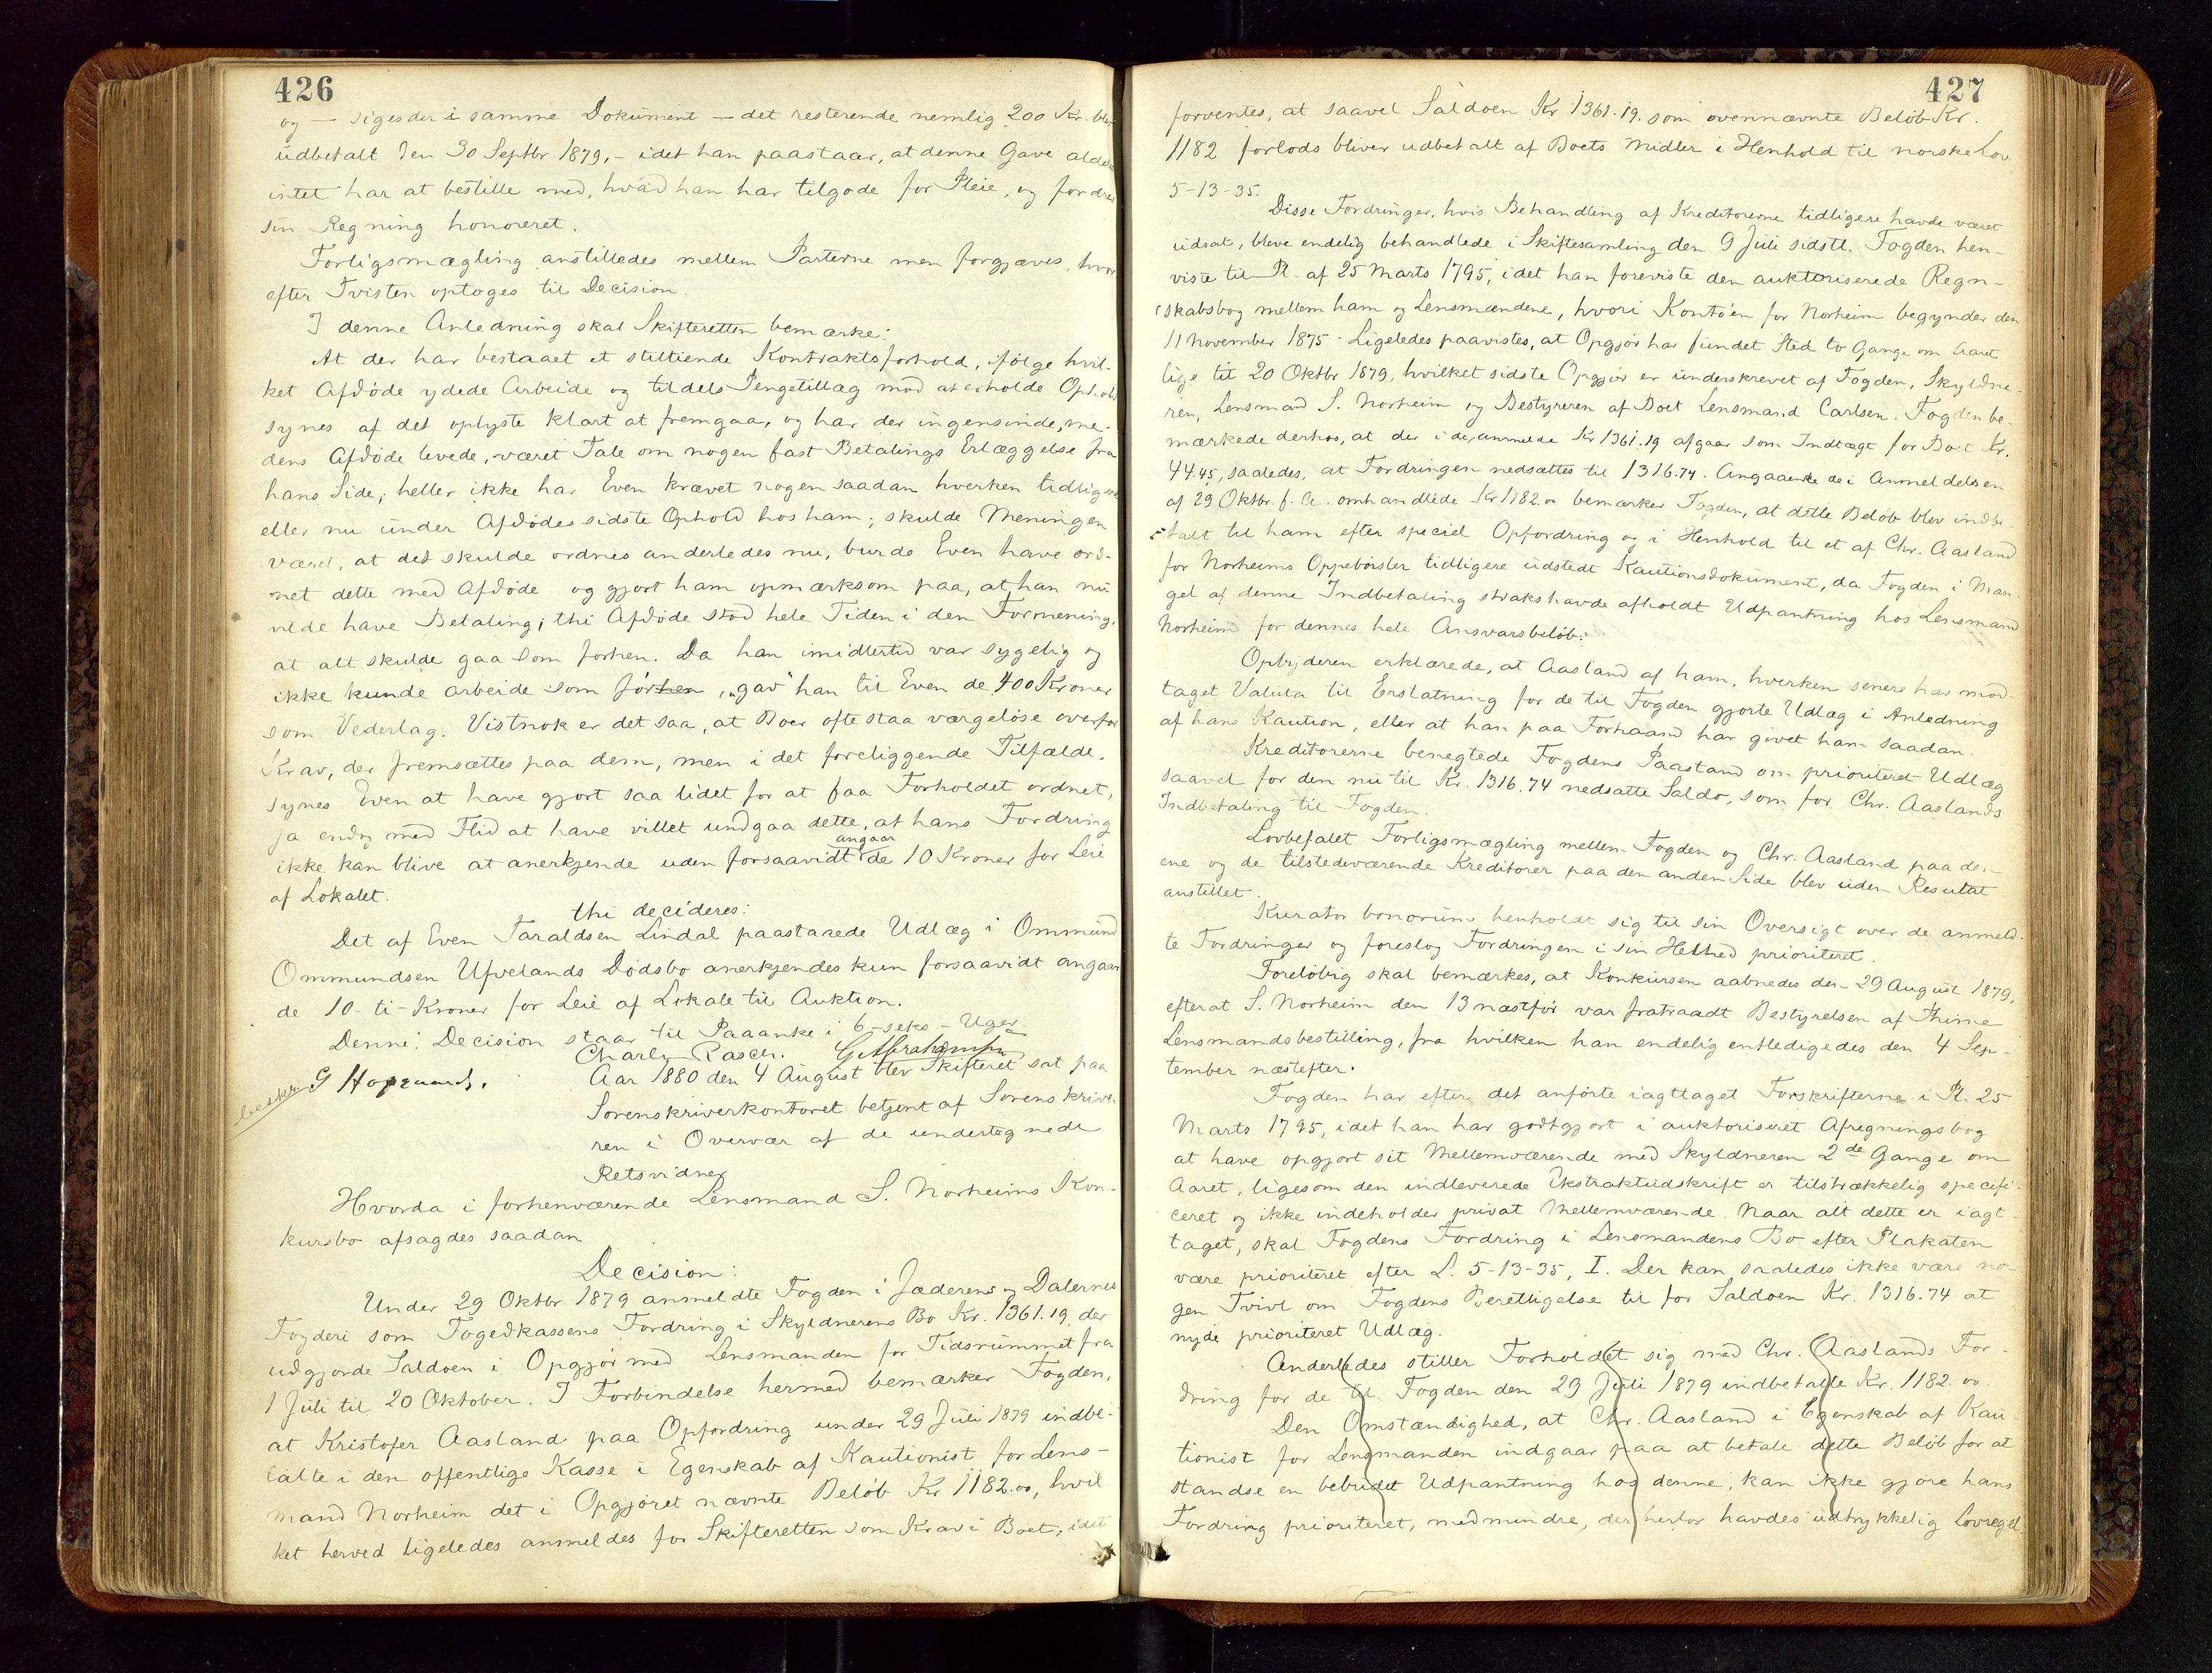 426
og — siges der i samme Dokument — det resterende nemlig 200 Kr. blev
udbetalt den 30 Septbr 1879, – idet han paastaar, at denne Gave aldeles
intet har at bestille med, hvad han har tilgode for Pleie, og fordrer
sin Regning honoreret.
Forligsmægling anstilledes mellem Parterne men forgjæves, hvor
efter Tvisten optoges til Decision.
I denne Anledning skal Skifteretten bemærke:
At der har bestaaet et stiltiende Kontraktsforhold, ifølge hvil-
ket Afdøde ydede Arbeide og tildels Pengetillæg mod at erholde Ophold
synes af det oplyste klart at fremgaa, og har der ingensinde, me-
dens Afdøde levede, været Tale om nogen fast Betalings Erlæggelse fra
hans Side; heller ikke har Even krævet nogen saadan hverken tidligere
eller nu under Afdødes sidste Ophold hos ham; skulde Meningen
været, at det skulde ordnes anderledes nu, burde Even have ord-
net dette med Afdøde og gjort ham opmærksom paa, at han nu
vilde have Betaling; thi Afdøde stod hele Tiden i den Formening,
at alt skulde gaa som forhen. Da han imidlertid var sygelig og
ikke kunde arbeide som forhen, „gav“ han til Even de 400 Kroner
som Vederlag. Vistnok er det saa, at Boer ofte staa værgeløse overfor
Krav, der fremsættes paa dem, men i det foreliggende Tilfælde,
synes Even at have gjort saa lidet for at faa Forholdet ordnet,
ja endog med Flid at have villet undgaa dette, at hans Fordring
ikke kan blive at anerkjende uden forsaavidt angaar de 10 Kroner for Leie
af Lokalet.
thi decideres:
Det af Even Taraldsen Lindal paastaaede Udlæg i Ommund
Ommundsen Ufvelands Dødsbo anerkjendes kun forsaavidt angaar
de 10 - ti - Kroner for Leie af Lokale til Auktion.
Denne Decision staar til Paaanke i 6 - seks - Uger
Charly Rasch. G Abrahamsen
beskr. G Hopgaard.
Aar 1880 den 4 August blev Skifteret sat paa
Sorenskriverkontoret betjent af Sorenskrive-
ren i Overvær af de undertegnede
Retsvidner
Hvorda i forhenværende Lensmand S. Norheims Kon-
kursbo afsagdes saadan
Decision:
Under 29 Oktbr 1879 anmeldte Fogden i Jæderens og Dalernes
Fogderi som Fogedkassens Fordring i Skyldnerens Bo Kr. 1361.19, der
udgjorde Saldoen i Opgjør med Lensmanden for Tidsrummet fra
1 Juli til 20 Oktober. I Forbindelse hermed bemærker Fogden,
at Kristofer Aasland paa Opfordring under 29 Juli 1879 indbe-
talte i den offentlige Kasse i Egenskab af Kautionist for Lens-
mand Norheim det i Opgjøret nævnte Beløb Kr 1182.00, hvil-
ket herved ligeledes anmeldes for Skifteretten som Krav i Boet, idet
427
forventes, at saavel Saldoen Kr 1361.19. som ovennævnte Beløb Kr.
1182 forlods bliver udbetalt af Boets Midler i Henhold til norske Lov
5-13-35.
Disse Fordringer, hvis Behandling af Kreditorerne tidligere havde været
udsat, bleve endelig behandlede i Skiftesamling den 9 Juli sidstl. Fogden hen-
viste til Pl. af 25 Marts 1795, idet han foreviste den auktoriserede Regn-
skabsbog mellem ham og Lensmændene, hvori Kontoen for Norheim begynder den
11 November 1875. Ligeledes paavistes, at Opgjør har fundet Sted to Gange om Aaret
lige til 20 Oktbr 1879, hvilket sidste Opgjør er underskrevet af Fogden, Skyldne-
ren, Lensmand S. Norheim og Bestyreren af Boet Lensmand Carlsen. Fogden be-
mærkede derhos, at der i de anmeldte Kr 1361.19 afgaar som Indtægt for Boet Kr.
44.45, saaledes, at Fordringen nedsættes til 1316.74. Angaaende de i Anmeldelsen
af 29 Oktbr. f. A. omhandlede Kr 1182.00 bemærker Fogden, at dette Beløb blev indbe-
talt til ham efter speciel Opfordring og i Henhold til et af Chr. Aasland
for Norheims Oppebørsler tidligere udstedt Kautionsdokument, da Fogden i Man-
gel af denne Indbetaling straks havde afholdt Udpantning hos Lensmand
Norheim for dennes hele Ansvarsbeløb.
Opbyderen erklærede, at Aasland af ham, hverken senere har mod-
taget Valuta til Erstatning for de til Fogden gjorte Udlæg i Anledning
af hans Kaution, eller at han paa Forhaand har givet ham saadan.
Kreditorerne benegtede Fogdens Paastand om prioriteret Udlæg
saavel for den nu til Kr. 1316.74 nedsatte Saldo, som for Chr. Aaslands
Indbetaling til Fogden.
Lovbefalet Forligsmægling mellem Fogden og Chr. Aasland paa den
ene og de tilstedeværende Kreditorer paa den anden Side blev uden Resultat
anstillet.
Kurator bonorum henholdt sig til sin Oversigt over de anmeld-
te Fordringer og foreslog Fordringen i sin Helhed prioriteret.
Foreløbig skal bemærkes, at Konkursen aabnedes den 29 August 1879,
efterat S. Norheim den 13 næstfør var fratraadt Bestyrelsen af Thime
Lensmandsbestilling, fra hvilken han endelig entledigedes den 4 Sep-
tember næstefter.
Fogden har efter det anførte iagttaget Forskrifterne i Pl. 25
Marts 1795, idet han har godtgjort i auktoriseret Afregningsbog
at have opgjort sit Mellemværende med Skyldneren 2de Gange om
Aaret, ligesom den indleverede Ekstraktudskrift er tilstrækkelig specifi-
ceret og ikke indeholder privat Mellemværende. Naar alt dette er iagt-
taget, skal Fogdens Fordring i Lensmandens Bo efter Plakaten
være prioriteret efter L. 5-13-35, I. Der kan saaledes ikke være no-
gen Tvivl om Fogdens Berettigelse til for Saldoen Kr. 1316.74 at
nyde prioriteret Udlæg.
Anderledes stiller Forholdet sig med Chr. Aaslands For-
dring for de til Fogden den 29 Juli 1879 indbetalte Kr. 1182.00.
Den Omstændighed, at Chr. Aasland i Egenskab af Kau-
tionist for Lensmanden indgaar paa at betale dette Beløb for at
standse en bebudet Udpantning hos denne, kan ikke gjøre hans
Fordring prioriteret, medmindre, der herfor havdes udtrykkelig Lovregel